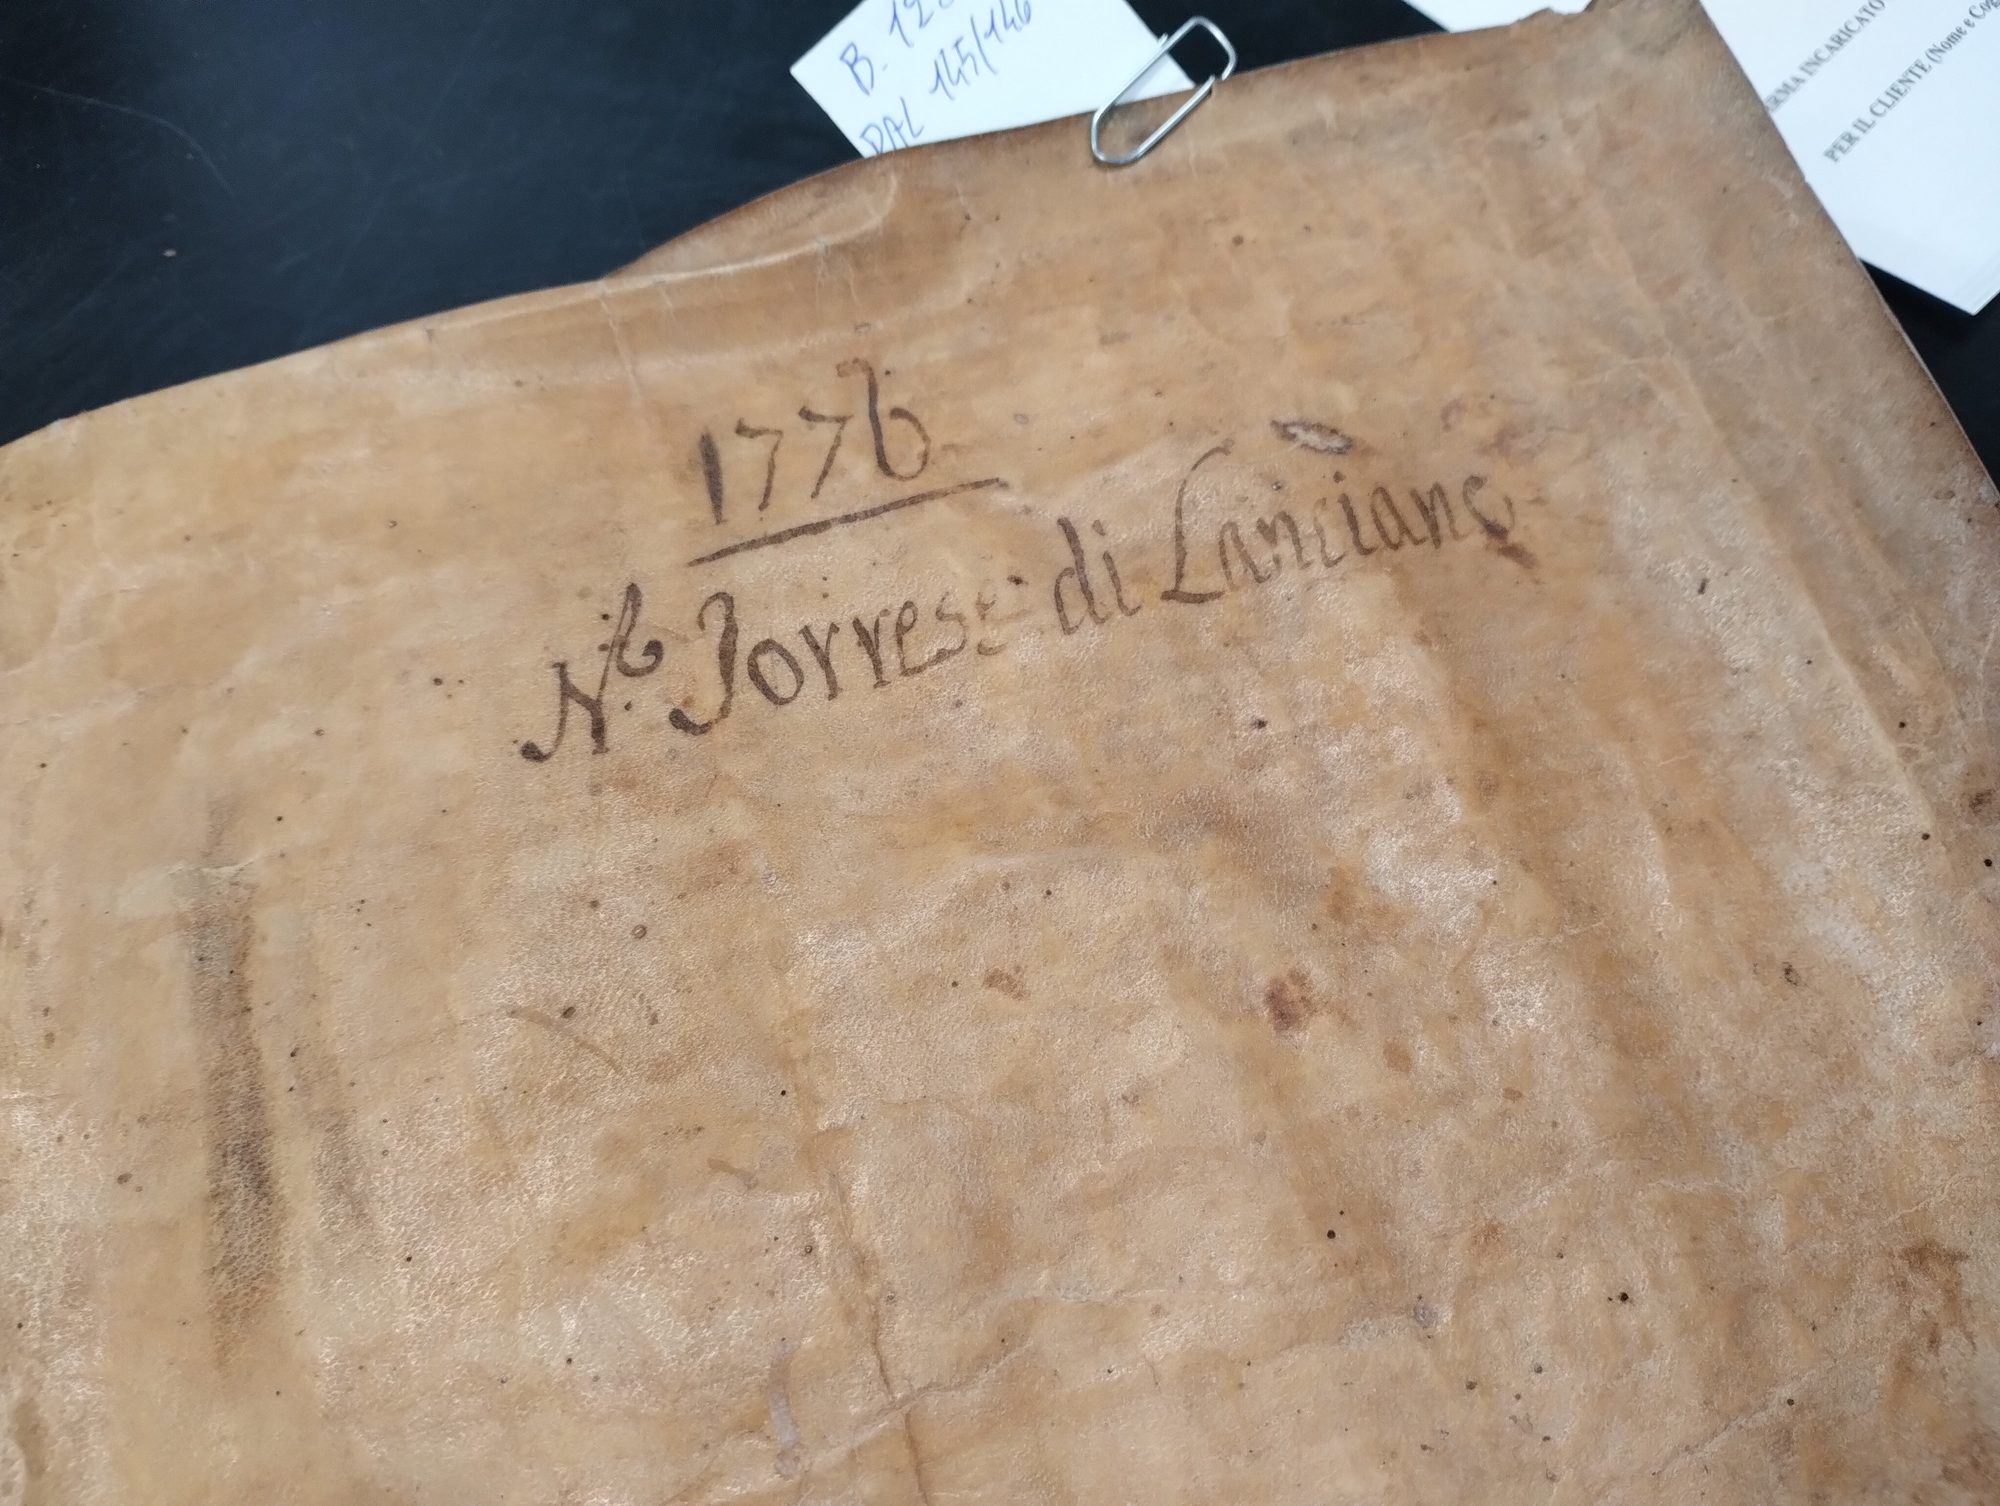 B.
DAL 145/146
RMA INCARICATO
PER IL CLIENTE (Nome e Cog
1776
N.r Torrese di Lanciano